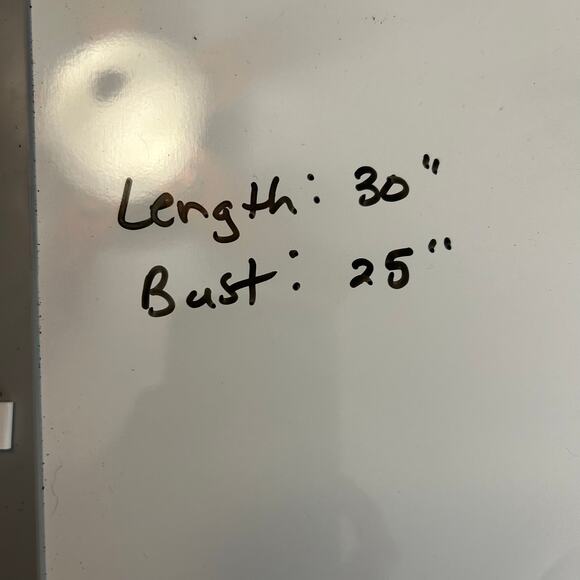 Length: 30"
Bust: 25"